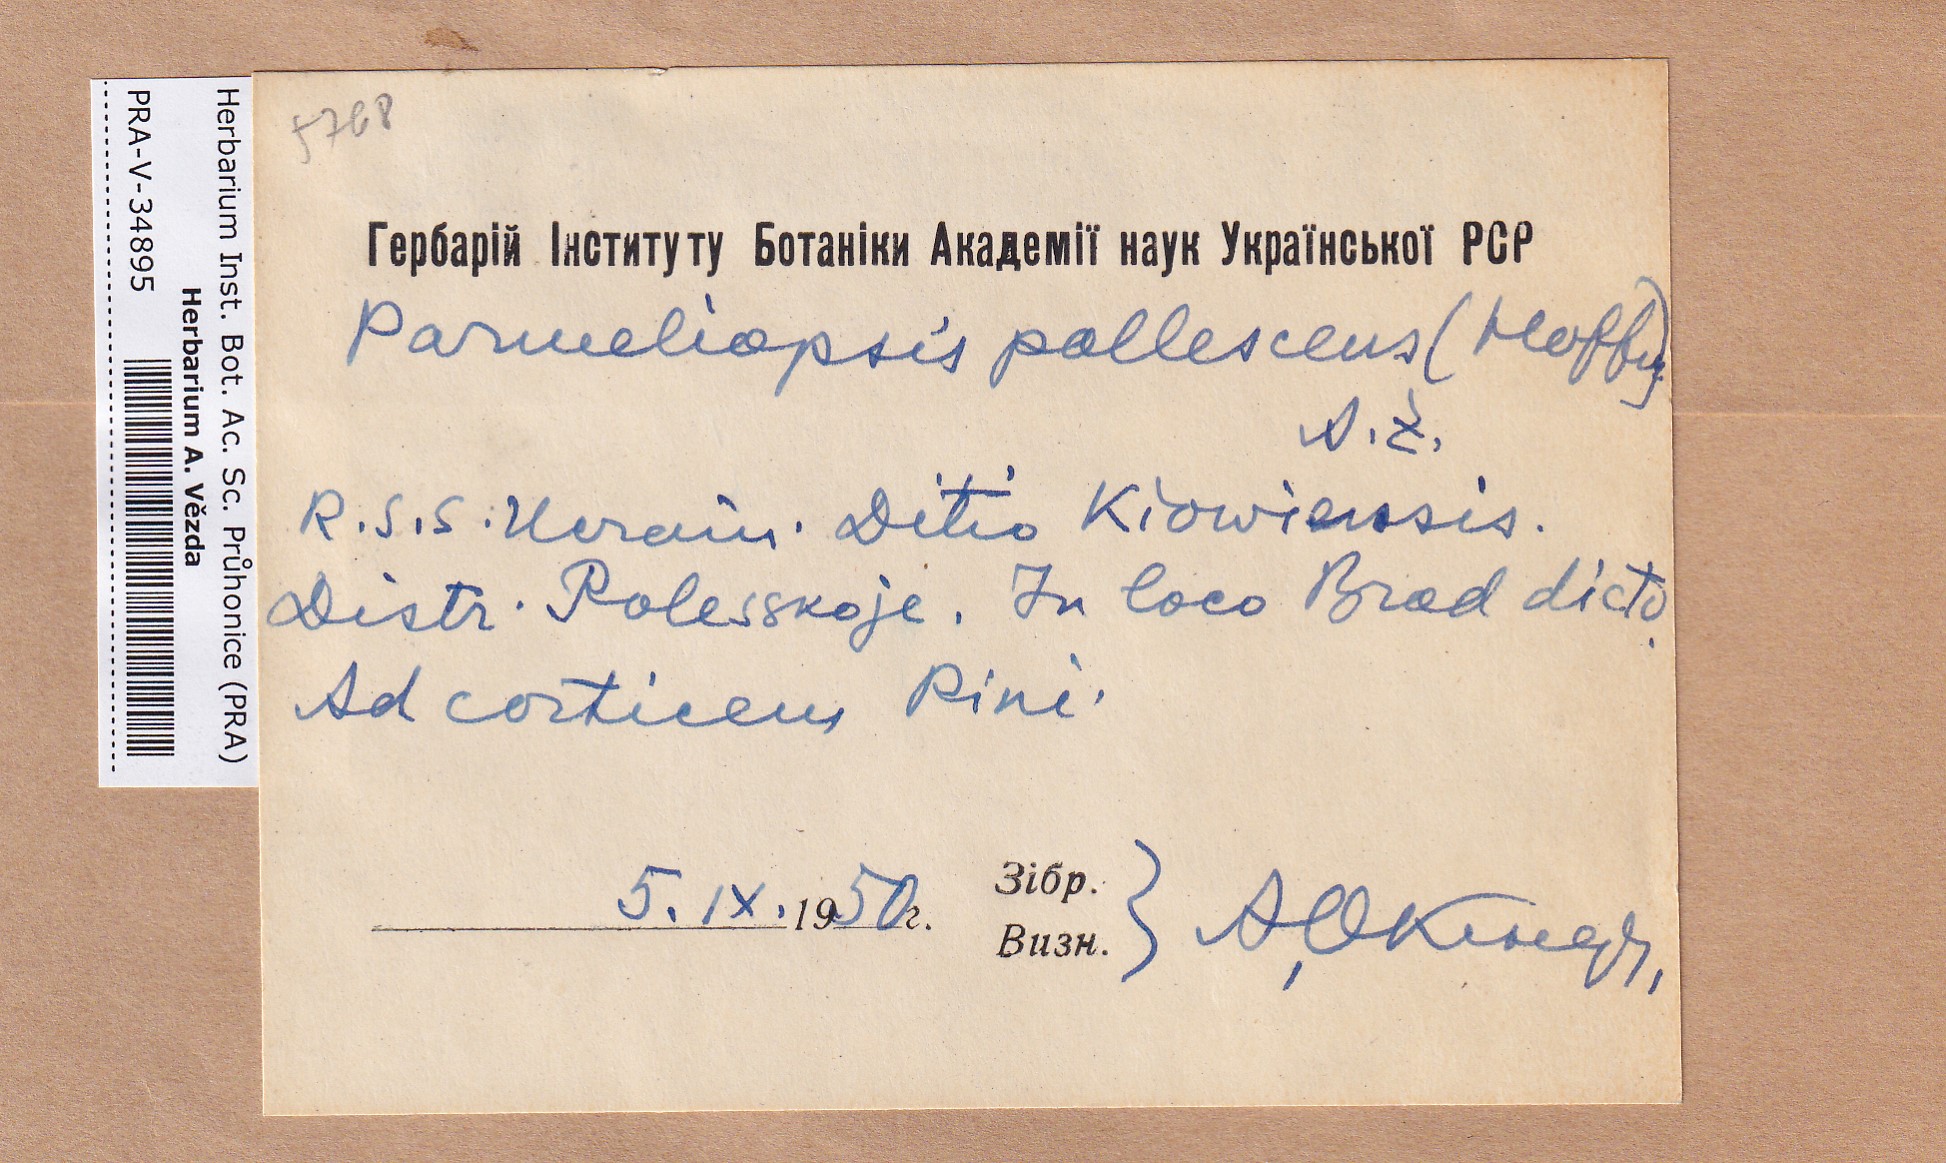 Herbarium Inst. Bot. Ac. Sc. Průhonice (PRA)
Herbarium A. Vězda
PRA-V-34895
5768
Гербарій Інституту Ботаніки Академії наук Української РСР
Parmeliopsis pallescens (Hoffm)
A. Z.
R.S.S. Ucrain. Ditio Kiowiensis.
Distr. Polesskoje. In loco Brod dicto.
Ad corticem Pini.
5. IX. 1950 г.
Зібр.
Визн.